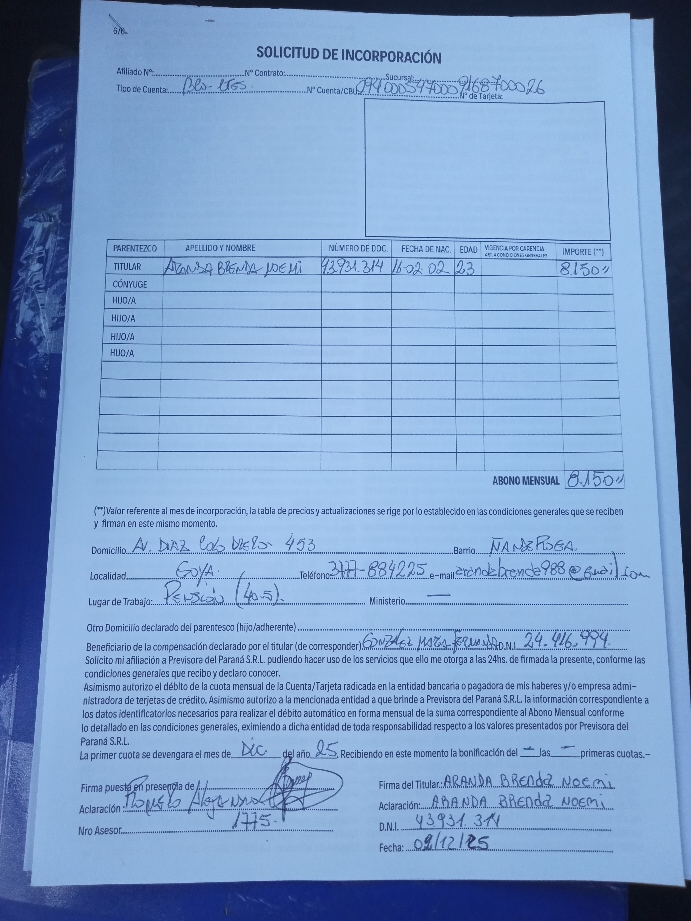 6/6-
SOLICITUD DE INCORPORACIÓN
Afiliado Nº: Nº Contrato: Sucursal:
Tipo de Cuenta: Nº Cuenta/CBU: Nº de Tarjeta:
PARENTEZCO APELLIDO Y NOMBRE NÚMERO DE DOC. FECHA DE NAC. EDAD VIGENCIA POR CARENCIA IMPORTE (**)
TITULAR ARANDA BRENDA NOEMI 43931.314 16-02 02 23 8.150
CÓNYUGE
HIJO/A
HIJO/A
HIJO/A
HIJO/A
ABONO MENSUAL 8.150
(**)Valor referente al mes de incorporación, la tabla de precios y actualizaciones se rige por lo establecido en las condiciones generales que se reciben
y firman en este mismo momento.
Domicilio AV. DIAZ 453 Barrio ÑANDEROGA.
Localidad GOYA. Teléfono: 3777-884225 e-mail arandabrenda988@gmail.com
Lugar de Trabajo: PENSIÓN (405). Ministerio —
Otro Domicilio declarado del parentesco (hijo/adherente)
Beneficiario de la compensación declarado por el titular (de corresponder) GONZALEZ D.N.I. 24.416.994.
Solicito mi afiliación a Previsora del Paraná S.R.L. pudiendo hacer uso de los servicios que ello me otorga a las 24hs. de firmada la presente, conforme las
condiciones generales que recibo y declaro conocer.
Asimismo autorizo el débito de la cuota mensual de la Cuenta/Tarjeta radicada en la entidad bancaria o pagadora de mis haberes y/o empresa admi-
nistradora de tarjetas de crédito. Asimismo autorizo a la mencionada entidad a que brinde a Previsora del Paraná S.R.L. la información correspondiente a
los datos identificatorios necesarios para realizar el débito automático en forma mensual de la suma correspondiente al Abono Mensual conforme
lo detallado en las condiciones generales, eximiendo a dicha entidad de toda responsabilidad respecto a los valores presentados por Previsora del
Paraná S.R.L.
La primer cuota se devengara el mes de DIC del año 25. Recibiendo en este momento la bonificación del — las — primeras cuotas.-
Firma puesta en presencia de Firma del Titular: ARANDA BRENDA NOEMI
Aclaración: ROMERO Aclaración: ARANDA BRENDA NOEMI
Nro Asesor 1775. D.N.I. 43931.314
Fecha: 02/12/25